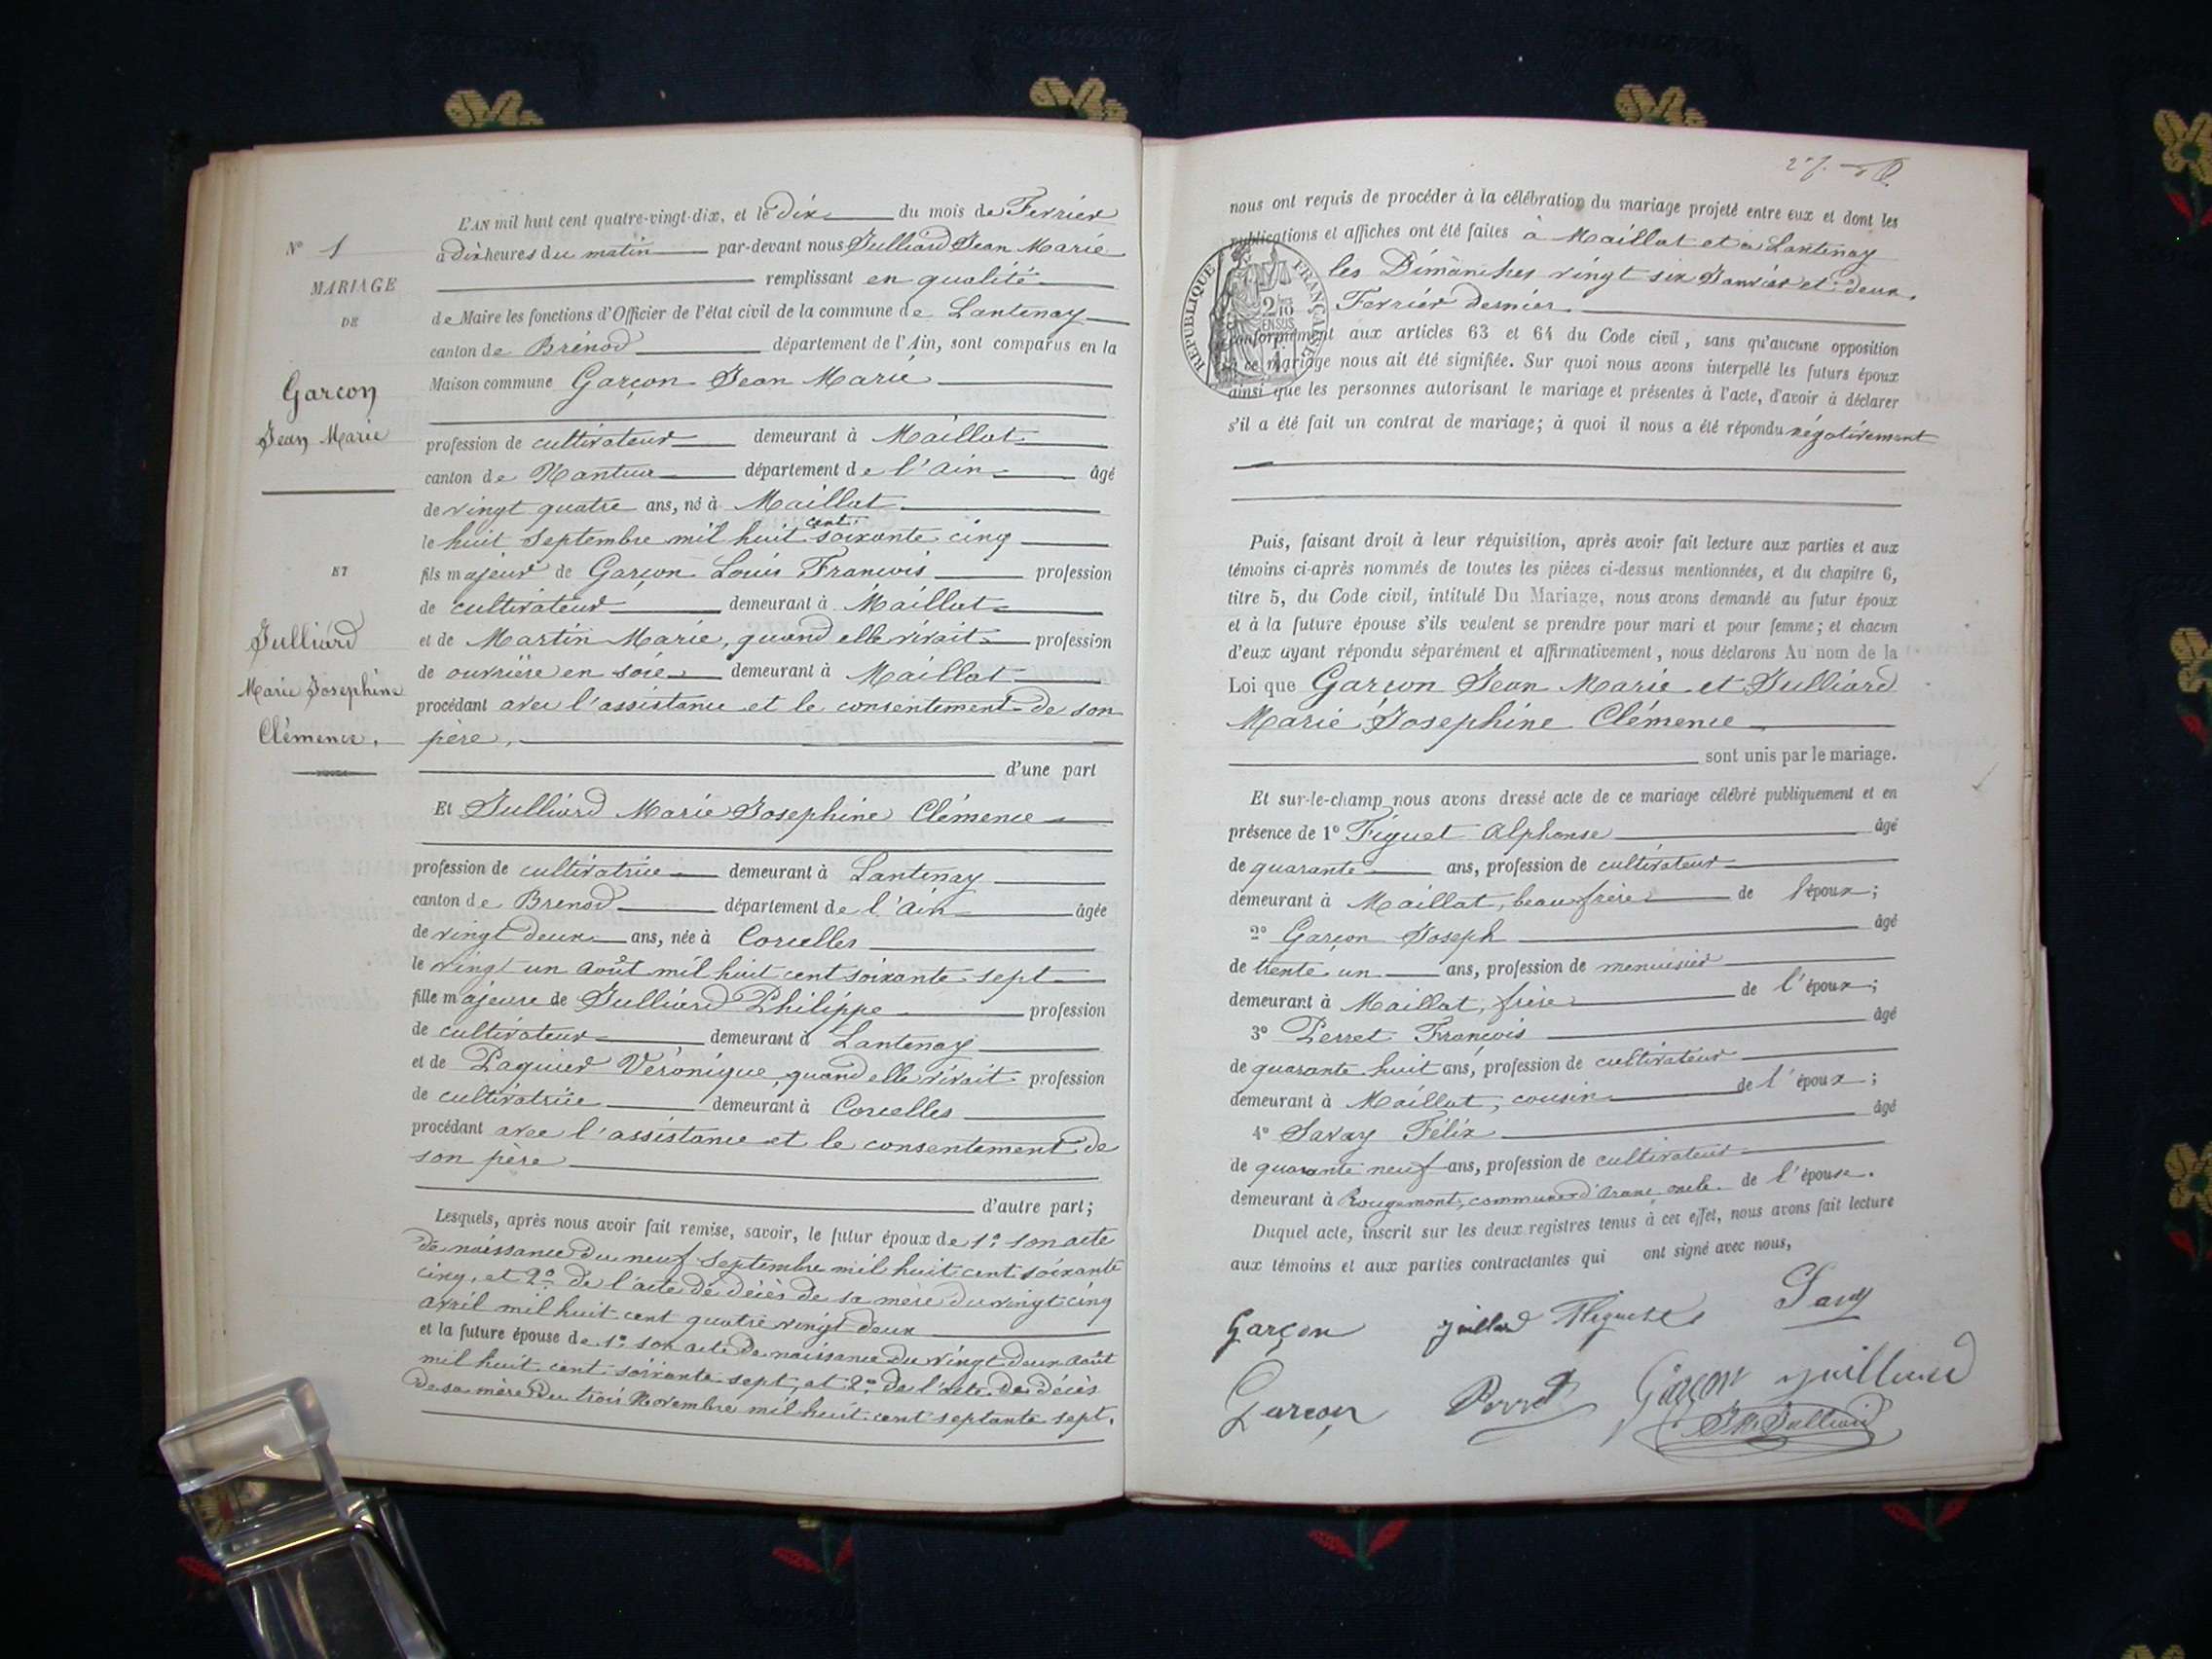 N° 1
MARIAGE
DE
Garçon
Jean Marie
ET
Julliard
Marie Josephine
Clémence.
L'AN mil huit cent quatre-vingt-dix, et le dix du mois de Fevrier
à dix heures du matin par-devant nous Julliard Jean Marie
remplissant en qualité
de Maire les fonctions d'Officier de l'état civil de la commune de Lantenay
canton de Brénod département de l'Ain, sont comparus en la
Maison commune Garçon Jean Marie
profession de cultivateur demeurant à Maillat
canton de Nantua département de l'Ain âgé
de vingt quatre ans, né à Maillat
le huit Septembre mil huit cent soixante cinq
fils majeur de Garçon Louis François profession
de cultivateur demeurant à Maillat
et de Martin Marie, quand elle vivait profession
de ouvrière en soie demeurant à Maillat
procédant avec l'assistance et le consentement de son
père,
d'une part
Et Julliard Marie Josephine Clémence
profession de cultivatrice demeurant à Lantenay
canton de Brenod département de l'Ain âgée
de vingt deux ans, née à Corcelles
le vingt un Août mil huit cent soixante sept
fille majeure de Julliard Philippe profession
de cultivateur demeurant à Lantenay
et de Paquier Véronique, quand elle vivait profession
de cultivatrice demeurant à Corcelles
procédant avec l'assistance et le consentement de
son père
d'autre part;
Lesquels, après nous avoir fait remise, savoir, le futur époux de 1° son acte
de naissance du neuf Septembre mil huit cent soixante
cinq, et 2° de l'acte de décès de sa mère du vingt cinq
avril mil huit cent quatre vingt deux
et la future épouse de 1° son acte de naissance du vingt deux Août
mil huit cent soixante sept, et 2° de l'acte de décès
de sa mère du trois Novembre mil huit cent septante sept.
nous ont requis de procéder à la célébration du mariage projeté entre eux et dont les
publications et affiches ont été faites à Maillat et à Lantenay
les Dimanches vingt six Janvier et deux
Fevrier dernier
REPUBLIQUE FRANÇAISE
2/10 EN SUS
conformément aux articles 63 et 64 du Code civil, sans qu'aucune opposition
à ce mariage nous ait été signifiée. Sur quoi nous avons interpellé les futurs époux
ainsi que les personnes autorisant le mariage et présentes à l'acte, d'avoir à déclarer
s'il a été fait un contrat de mariage; à quoi il nous a été répondu négativement
Puis, faisant droit à leur réquisition, après avoir fait lecture aux parties et aux
témoins ci-après nommés de toutes les pièces ci-dessus mentionnées, et du chapitre 6,
titre 5, du Code civil, intitulé Du Mariage, nous avons demandé au futur époux
et à la future épouse s'ils veulent se prendre pour mari et pour femme; et chacun
d'eux ayant répondu séparément et affirmativement, nous déclarons Au nom de la
Loi que Garçon Jean Marie et Julliard
Marie Josephine Clémence
sont unis par le mariage.
Et sur-le-champ nous avons dressé acte de ce mariage célébré publiquement et en
présence de 1° Figuet Alphonse âgé
de quarante ans, profession de cultivateur
demeurant à Maillat, beau frère de l'époux;
2° Garçon Joseph âgé
de trente un ans, profession de menuisier
demeurant à Maillat, frère de l'époux;
3° Perret François âgé
de quarante huit ans, profession de cultivateur
demeurant à Maillat, cousin de l'époux;
4° Savay Félix âgé
de quarante neuf ans, profession de cultivateur
demeurant à Rougemont, commune d'Aranc, oncle de l'épouse.
Duquel acte, inscrit sur les deux registres tenus à cet effet, nous avons fait lecture
aux témoins et aux parties contractantes qui ont signé avec nous,
Garçon juillard Figuet Savy
Garçon Perret Garçon juilliard
J M Julliard